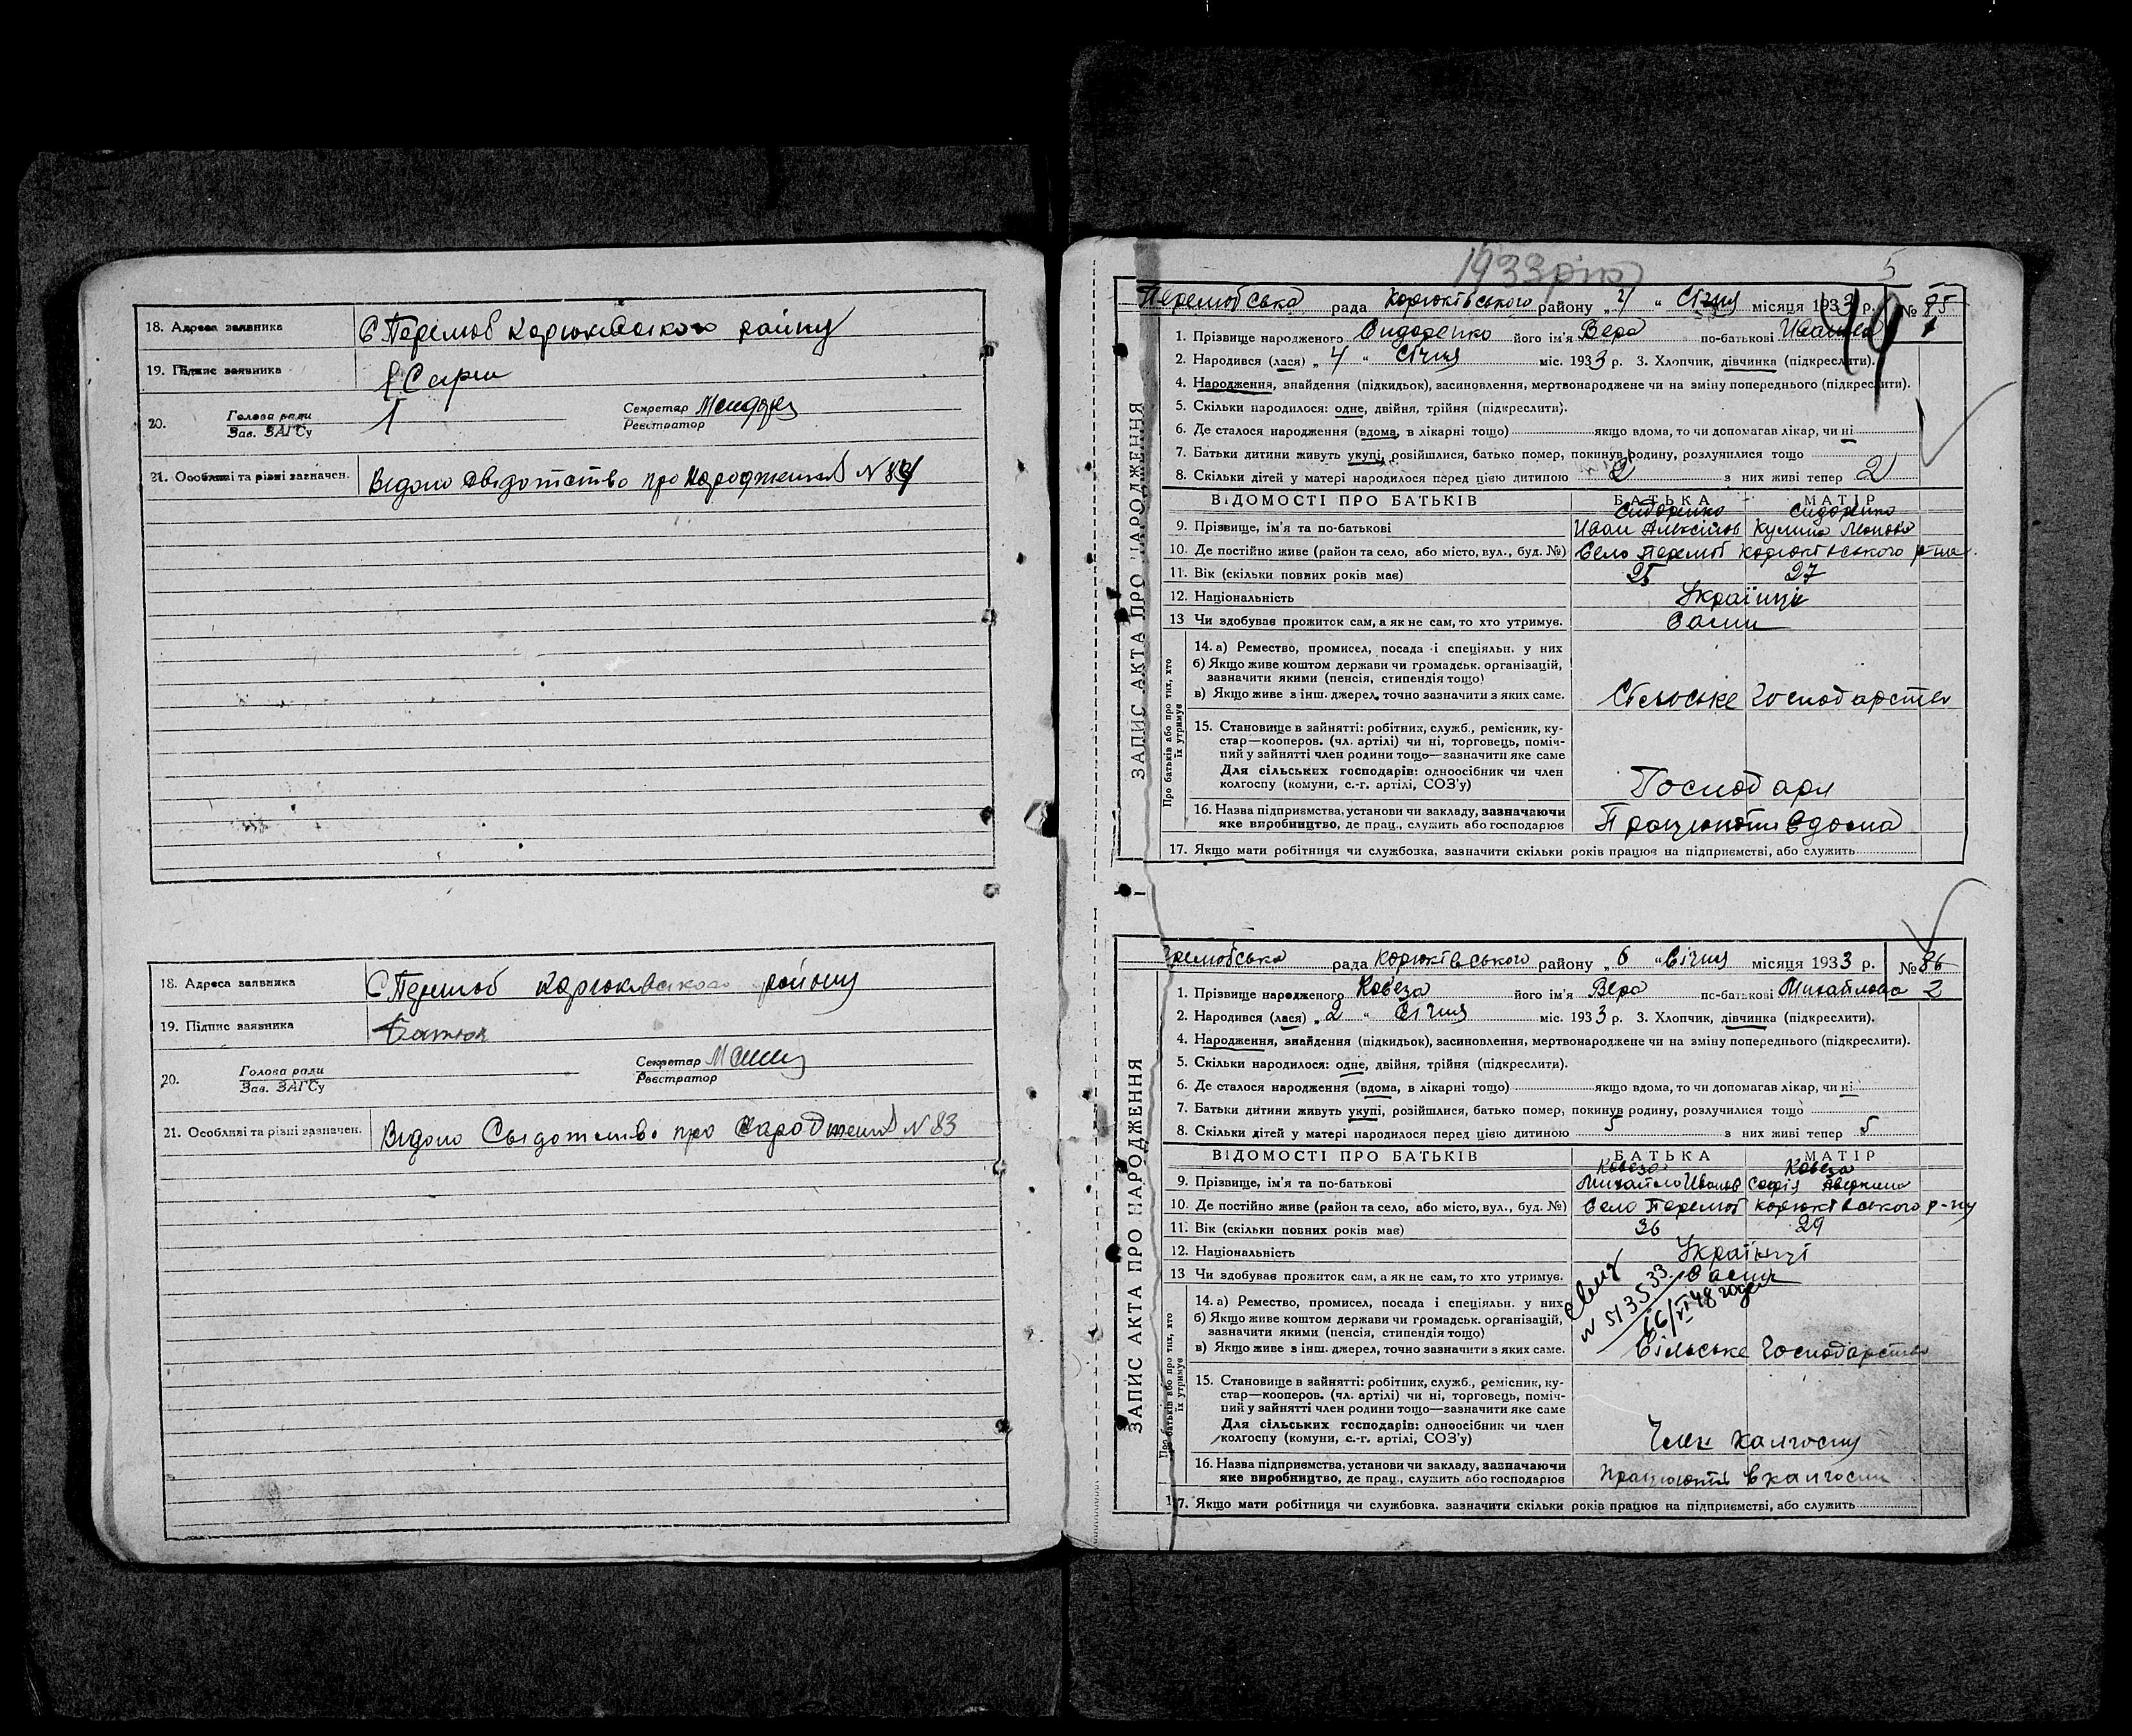 18. Адреса заявника с Перелюб Корюківського району
19. Підпис заявника
20. Голова ради Секретар
Зав. ЗАГСу Реєстратор
21. Особливі та різні зазначен. Видано свідотство про Народження N 84
18. Адреса заявника с Перелюб Корюківського району
19. Підпис заявника
20. Голова ради Секретар
Зав. ЗАГСу Реєстратор
21. Особливі та різні зазначен. Видано Свідотство про Народження N 83
1933 рік
5
Перелюбська рада Корюківського району „4 “ Січня місяця 1933 р. № 85
1
ЗАПИС АКТА ПРО НАРОДЖЕННЯ
1. Прізвище народженого Сидоренко його ім'я Вера по-батькові
2. Народився (лася) „ 4 “ Січня міс. 1933 р. 3. Хлопчик, дівчинка (підкреслити).
4. Народження, знайдення (підкидьок), засиновлення, мертвонароджене чи на зміну попереднього (підкреслити).
5. Скільки народилося: одне, двійня, трійня (підкреслити).
6. Де сталося народження (вдома, в лікарні тощо) якщо вдома, то чи допомагав лікар, чи ні
7. Батьки дитини живуть укупі, розійшлися, батько помер, покинув родину, розлучилися тощо
8. Скільки дітей у матері народилося перед цією дитиною 2 з них живі тепер 2
ВІДОМОСТІ ПРО БАТЬКІВ БАТЬКА МАТІР
Сидоренко Сидоренко
9. Прізвище, ім'я та по-батькові Иван Алексійов Кулина
10. Де постійно живе (район та село, або місто, вул., буд. №) Село Перелюб Корюківського р-ну
11. Вік (скільки повних років має) 25 27
12. Національність Українці
13 Чи здобуває прожиток сам, а як не сам, то хто утримує. Сами
Про батьків або про тих, хто їх утримує
14. а) Ремество, промисел, посада і спеціяльн. у них
б) Якщо живе коштом держави чи громадськ. організацій,
зазначити якими (пенсія, стипендія тощо)
в) Якщо живе з інш. джерел, точно зазначити з яких саме. Сільське Господарство
15. Становище в зайнятті: робітник, служб., ремісник, ку-
стар—кооперов. (чл. артілі) чи ні, торговець, поміч-
ний у зайнятті член родини тощо—зазначити яке саме
Для сільських господарів: одноосібник чи член
колгоспу (комуни, с.-г. артілі, СОЗ'у) Господаря
16. Назва підприємства, установи чи закладу, зазначаючи
яке виробництво, де прац., служить або господарює Працюють вдома
17. Якщо мати робітниця чи службовка, зазначити скільки років працює на підприємстві, або служить
Перелюбська рада Корюківського району „ 6 “ Січня місяця 1933 р. № 86
2
ЗАПИС АКТА ПРО НАРОДЖЕННЯ
1. Прізвище народженого Ковеза його ім'я Вера по-батькові Михайловна
2. Народився (лася) „ 2 “ Січня міс. 1933 р. 3. Хлопчик, дівчинка (підкреслити).
4. Народження, знайдення (підкидьок), засиновлення, мертвонароджене чи на зміну попереднього (підкреслити).
5. Скільки народилося: одне, двійня, трійня (підкреслити).
6. Де сталося народження (вдома, в лікарні тощо) якщо вдома, то чи допомагав лікар, чи ні
7. Батьки дитини живуть укупі, розійшлися, батько помер, покинув родину, розлучилися тощо
8. Скільки дітей у матері народилося перед цією дитиною 5 з них живі тепер 5
ВІДОМОСТІ ПРО БАТЬКІВ БАТЬКА МАТІР
Ковеза Ковеза
9. Прізвище, ім'я та по-батькові Михайло Иванов Софія
10. Де постійно живе (район та село, або місто, вул., буд. №) Село Перелюб Корюківського р-ну
11. Вік (скільки повних років має) 36 29
12. Національність Українці
13 Чи здобуває прожиток сам, а як не сам, то хто утримує. Сами
Про батьків або про тих, хто їх утримує
14. а) Ремество, промисел, посада і спеціяльн. у них
б) Якщо живе коштом держави чи громадськ. організацій,
зазначити якими (пенсія, стипендія тощо)
в) Якщо живе з інш. джерел, точно зазначити з яких саме. Сільське Господарство
15. Становище в зайнятті: робітник, служб., ремісник, ку-
стар—кооперов. (чл. артілі) чи ні, торговець, поміч-
ний у зайнятті член родини тощо—зазначити яке саме
Для сільських господарів: одноосібник чи член
колгоспу (комуни, с.-г. артілі, СОЗ'у) Член калгоспу
16. Назва підприємства, установи чи закладу, зазначаючи
яке виробництво, де прац., служить або господарює працюють в калгоспи
17. Якщо мати робітниця чи службовка, зазначити скільки років працює на підприємстві, або служить